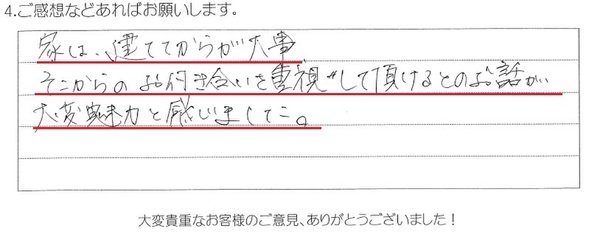 4.ご感想などあればお願いします。
家は、建ててからが大事、
そこからのお付き合いを重視して頂けるとのお話が
大変魅力と感じました。
大変貴重なお客様のご意見、ありがとうございました！